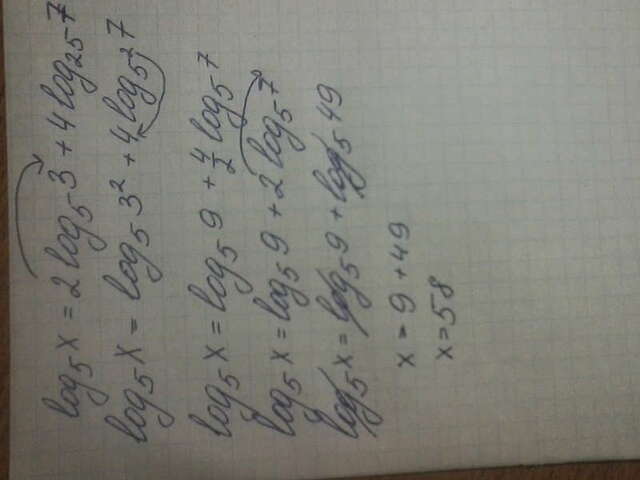 log₅x = 2log₅3 + 4log₂₅7
log₅x = log₅3² + 4log₅²7
log₅x = log₅9 + 4/2 log₅7
log₅x = log₅9 + 2log₅7
log₅x = log₅9 + log₅49
x = 9 + 49
x = 58